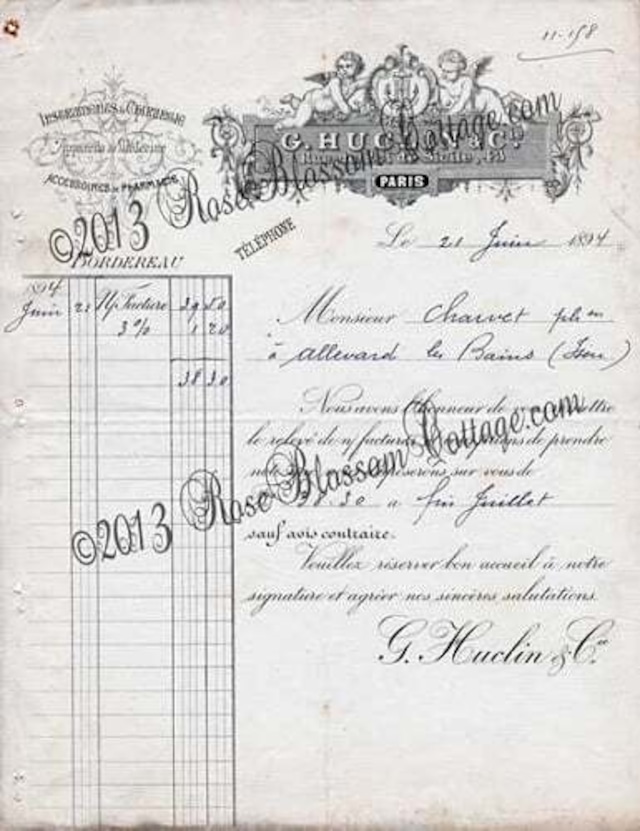 11-158
INSTRUMENTS DE CHIRURGIE
Appareils de Médecine
ACCESSOIRES DE PHARMACIE
G. HUCLIN & Cie
Rue de Sicile, 
PARIS
©2013 Rose Blossom Cottage.com
TÉLÉPHONE
BORDEREAU
Le 21 Juin 1894
1894
Juin 21 N/ Facture 39 50
3% 1 20
38 30
Monsieur Charvet phen
à Allevard les Bains (Isère)
Nous avons l'honneur de vous remettre
le relevé de n/ factures de prendre
note que nous disposerons sur vous de
38.30 a fin Juillet
sauf avis contraire.
Veuillez réserver bon accueil à notre
signature et agréer nos sincères salutations.
©2013 Rose Blossom Cottage.com
G. Huclin & Cie